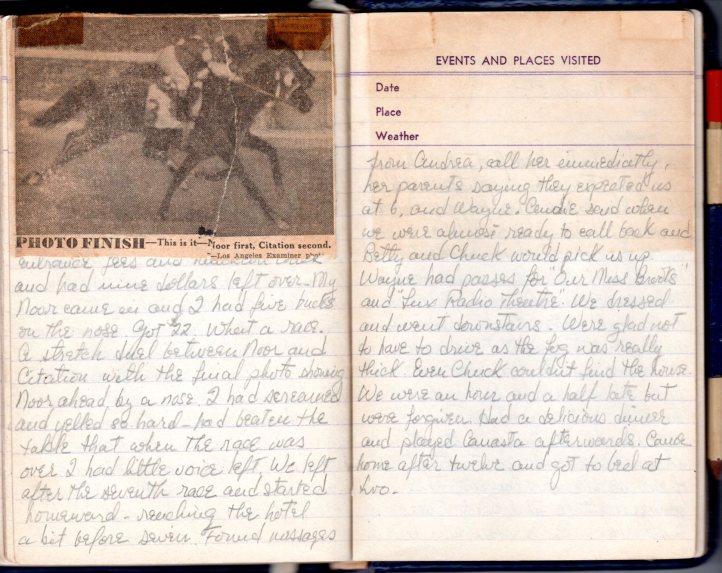 PHOTO FINISH—This is it—Noor first, Citation second.
—Los Angeles Examiner pho
entrance fees and
and had nine dollars left over. My
Noor came in and I had five bucks
on the nose. Got 22. What a race.
A stretch duel between Noor and
Citation with the final photo showing
Noor ahead by a nose. I had screamed
and yelled so hard - had beaten the
table that when the race was
over I had little voice left. We left
after the seventh race and started
homeward - reaching the hotel
a bit before seven. Found messages
EVENTS AND PLACES VISITED
Date
Place
Weather
from Andrea, call her immediatly,
her parents saying they expected us
at 6, and Wayne. Candie said when
we were almost ready to call back and
Betty and Chuck would pick us up.
Wayne had passes for "Our Miss Brooks"
and "Lux Radio Theatre. We dressed
and went downstairs. Were glad not
to have to drive as the fog was really
thick. Even Chuck couldnt find the house.
We were an hour and a half late but
were forgiven. Had a delicious dinner
and played Canasta afterwards. Came
home after twelve and got to bed at
two.